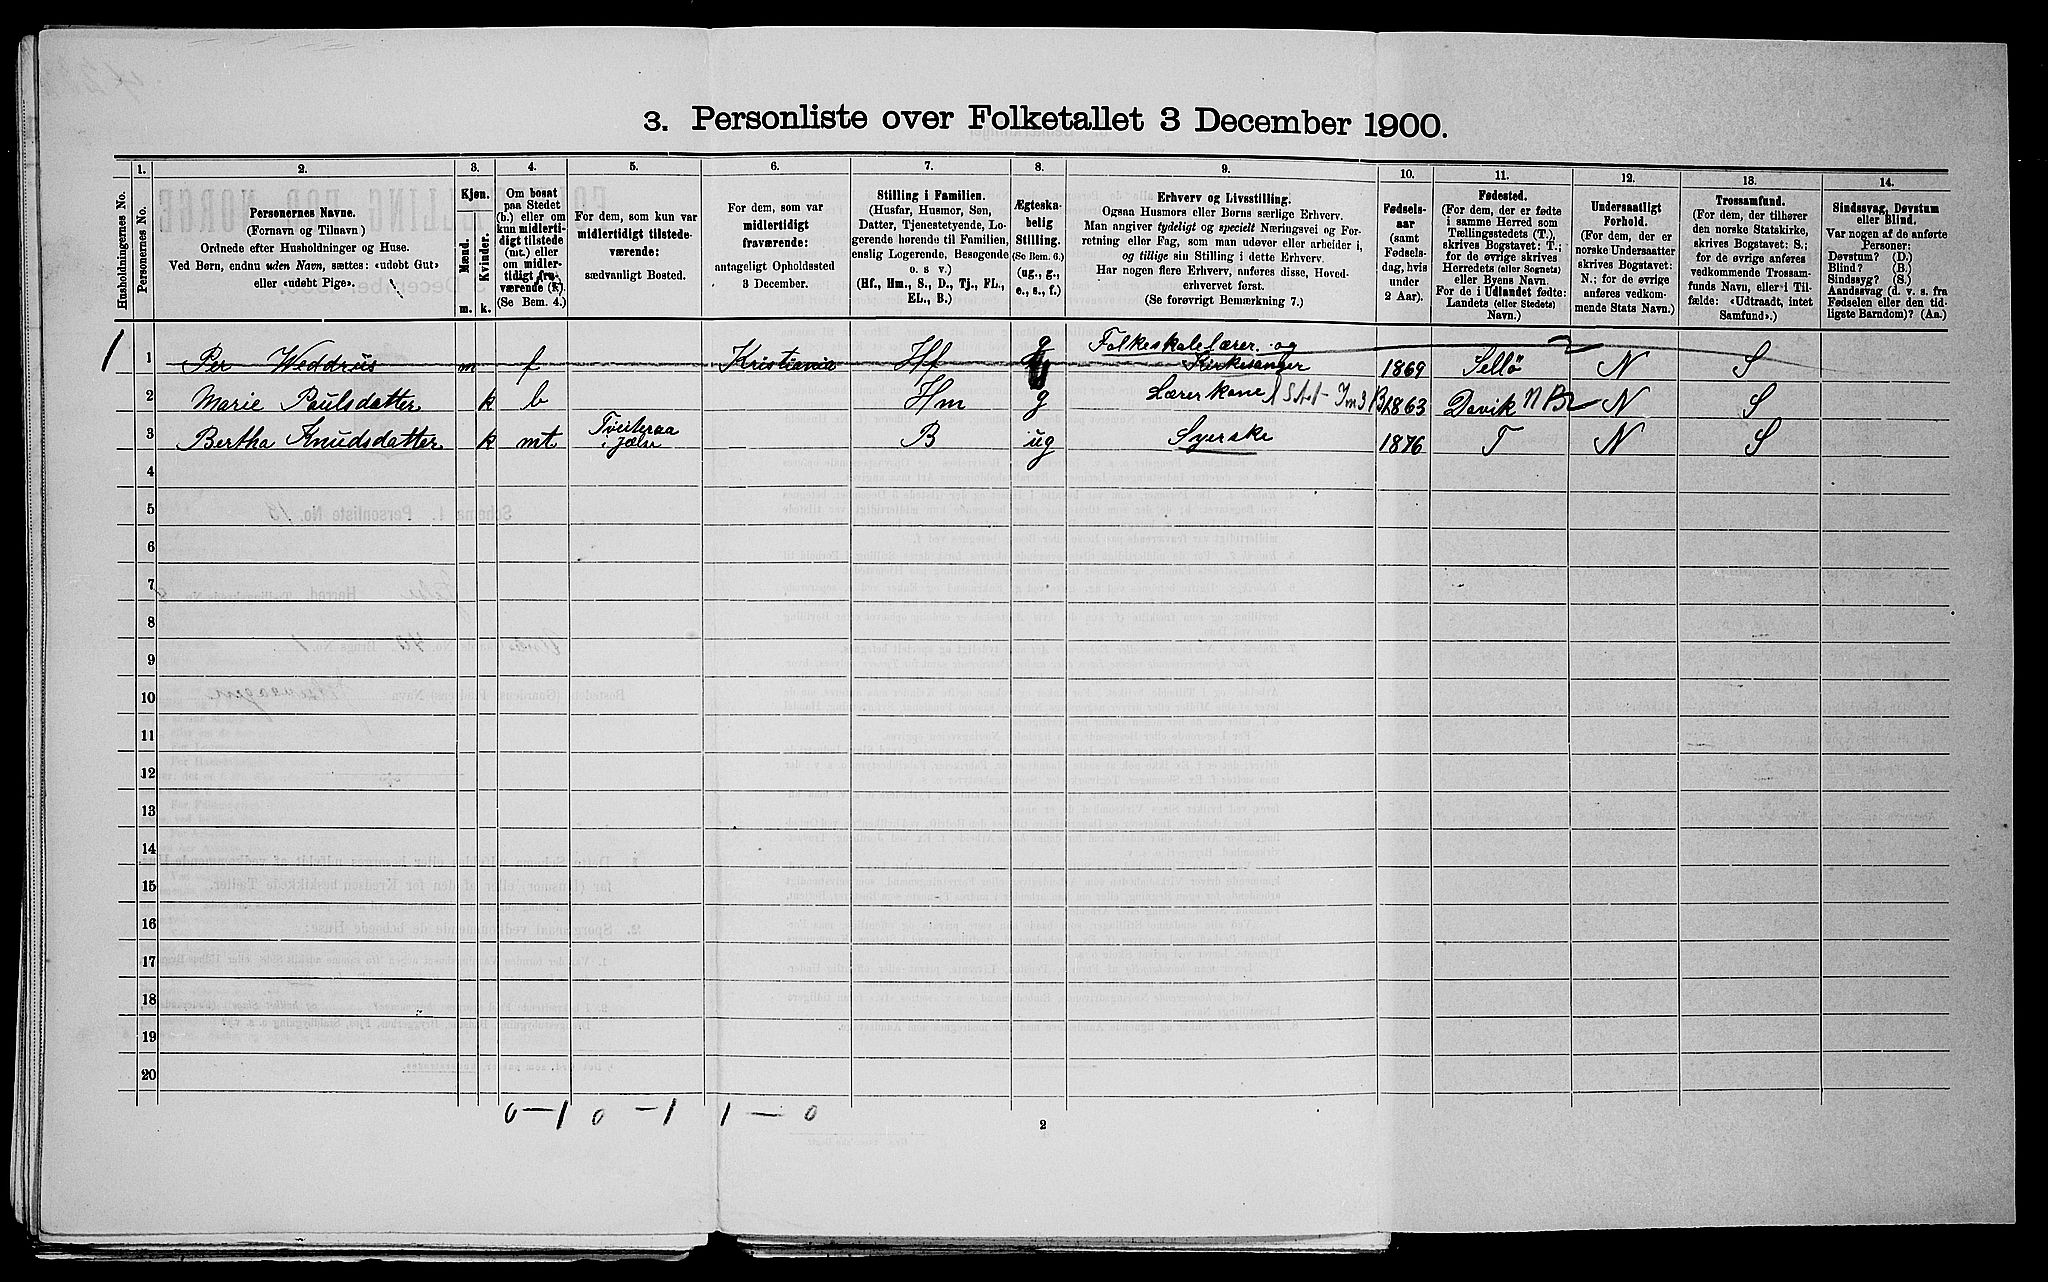 3. Personliste over Folketallet 3 December 1900.
1. 2. 3. 4. 5. 6. 7. 8. 9. 10. 11. 12. 13. 14.
Husholdningernes No.
Personernes No.
Personernes Navne.
(Fornavn og Tilnavn.)
Ordnede efter Husholdninger og Huse.
Ved Børn, endnu uden Navn, sættes: «udøbt Gut»
eller «udøbt Pige».
Kjøn.
Mænd. Kvinder.
m. k.
Om bosat
paa Stedet
(b.) eller om
kun midlerti-
digt tilstede
(mt.) eller
om midler-
tidigt fra-
værende (f.).
(Se Bem. 4.)
For dem, som kun var
midlertidigt tilstede-
værende:
sædvanligt Bosted.
For dem, som var
midlertidigt
fraværende:
antageligt Opholdssted
3 December.
Stilling i Familien.
(Husfar, Husmor, Søn,
Datter, Tjenestetyende, Lo-
gerende hørende til Familien,
enslig Logerende, Besøgende
o. s. v.)
(Hf., Hm., S., D., Tj., FL.,
EL., B.)
Ægteska-
belig
Stilling.
(Se Bem. 6.)
(ug., g.,
e., s., f.)
Erhverv og Livsstilling.
Ogsaa Husmors eller Børns særlige Erhverv.
Man angiver tydeligt og specielt Næringsvei og For-
retning eller Fag, som man udøver eller arbeider i,
og tillige sin Stilling i dette Erhverv.
Har nogen flere Erhverv, anføres disse, Hoved-
erhvervet først.
(Se forøvrigt Bemærkning 7.)
Fødsels-
aar
(samt
Fødsels-
dag, hvis
under
2 Aar).
Fødested.
(For dem, der er fødte
i samme Herred som
Tællingsstedets (T.),
skrives Bogstavet: T.;
for de øvrige skrives
Herredets (eller Sognets)
eller Byens Navn.
For de i Udlandet fødte:
Landets (eller Stedets)
Navn.)
Undersaatligt
Forhold.
(For dem, der er
norske Undersaatter
skrives Bogstavet:
N.; for de øvrige
anføres vedkom-
mende Stats Navn.)
Trossamfund.
(For dem, der tilhører
den norske Statskirke,
skrives Bogstavet: S.;
for de øvrige anføres
vedkommende Trossam-
funds Navn, eller i Til-
fælde: «Udtraadt, intet
Samfund».)
Sindssvag, Døvstum
eller Blind.
Var nogen af de anførte
Personer:
Døvstum? (D.)
Blind? (B.)
Sindssyg? (S.)
Aandssvag (d. v. s. fra
Fødselen eller den tid-
ligste Barndom)? (Aa.)
1 1 Per Weddrus m f Kristiania Hf g Folkeskolelærer og
Kirkesanger 1869 Sellø N S
2 Marie Paulsdatter k b Hm g Lærerkone 1863 Davik N S
3 Bertha Knudsdatter k mt Tveiteraa
i Jelse B ug Syerske 1876 T N S
4
5
6
7
8
9
10
11
12
13
14
15
16
17
18
19
20
0 – 1 0 – 1 1 – 0
2